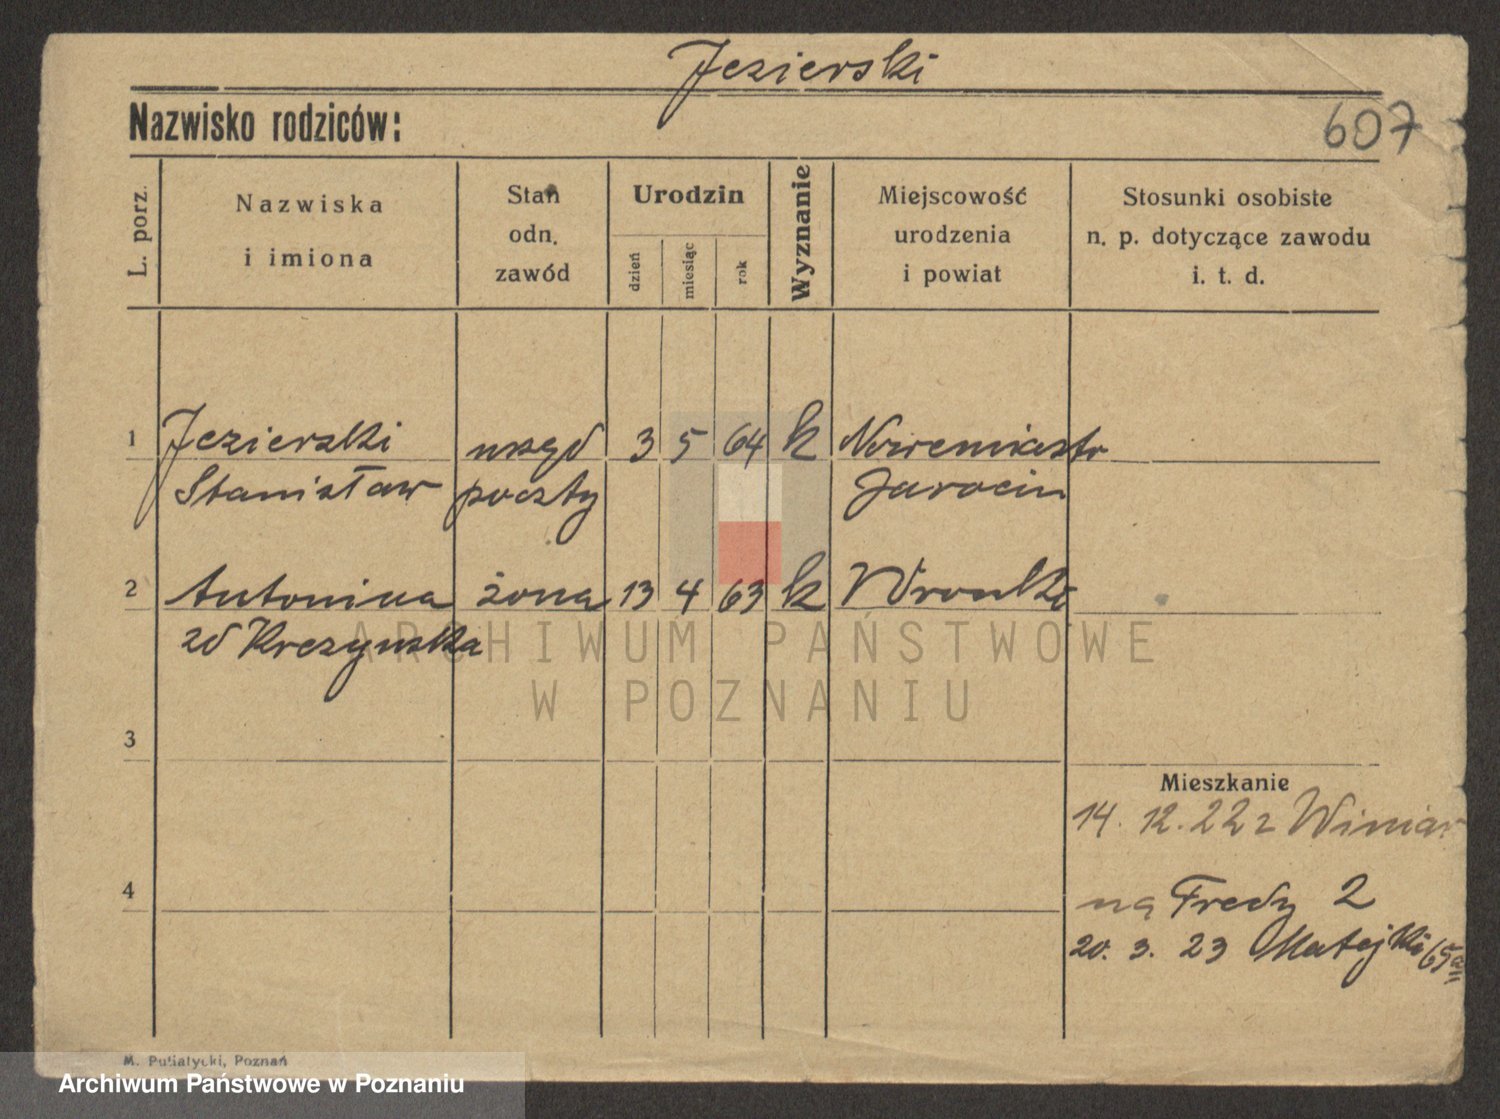 Jezierski
Nazwisko rodziców:
607
L. porz.
Nazwiska
i imiona
Stan
odn.
zawód
Urodzin
dzień
miesiąc
rok
Wyznanie
Miejscowość
urodzenia
i powiat
Stosunki osobiste
n. p. dotyczące zawodu
i. t. d.
1 Jezierski urzęd 3 5 64 k Nowemiasto
Stanisław poczty Jarocin
2 Antonina żona 13 4 63 k Wronki
zd Krczyńska
ARCHIWUM PAŃSTWOWE
W POZNANIU
3
Mieszkanie
14. 12. 22 z Winiar
4
na Fredry 2
20. 3. 23 Matejki 65a
M. Putiatycki, Poznań
Archiwum Państwowe w Poznaniu